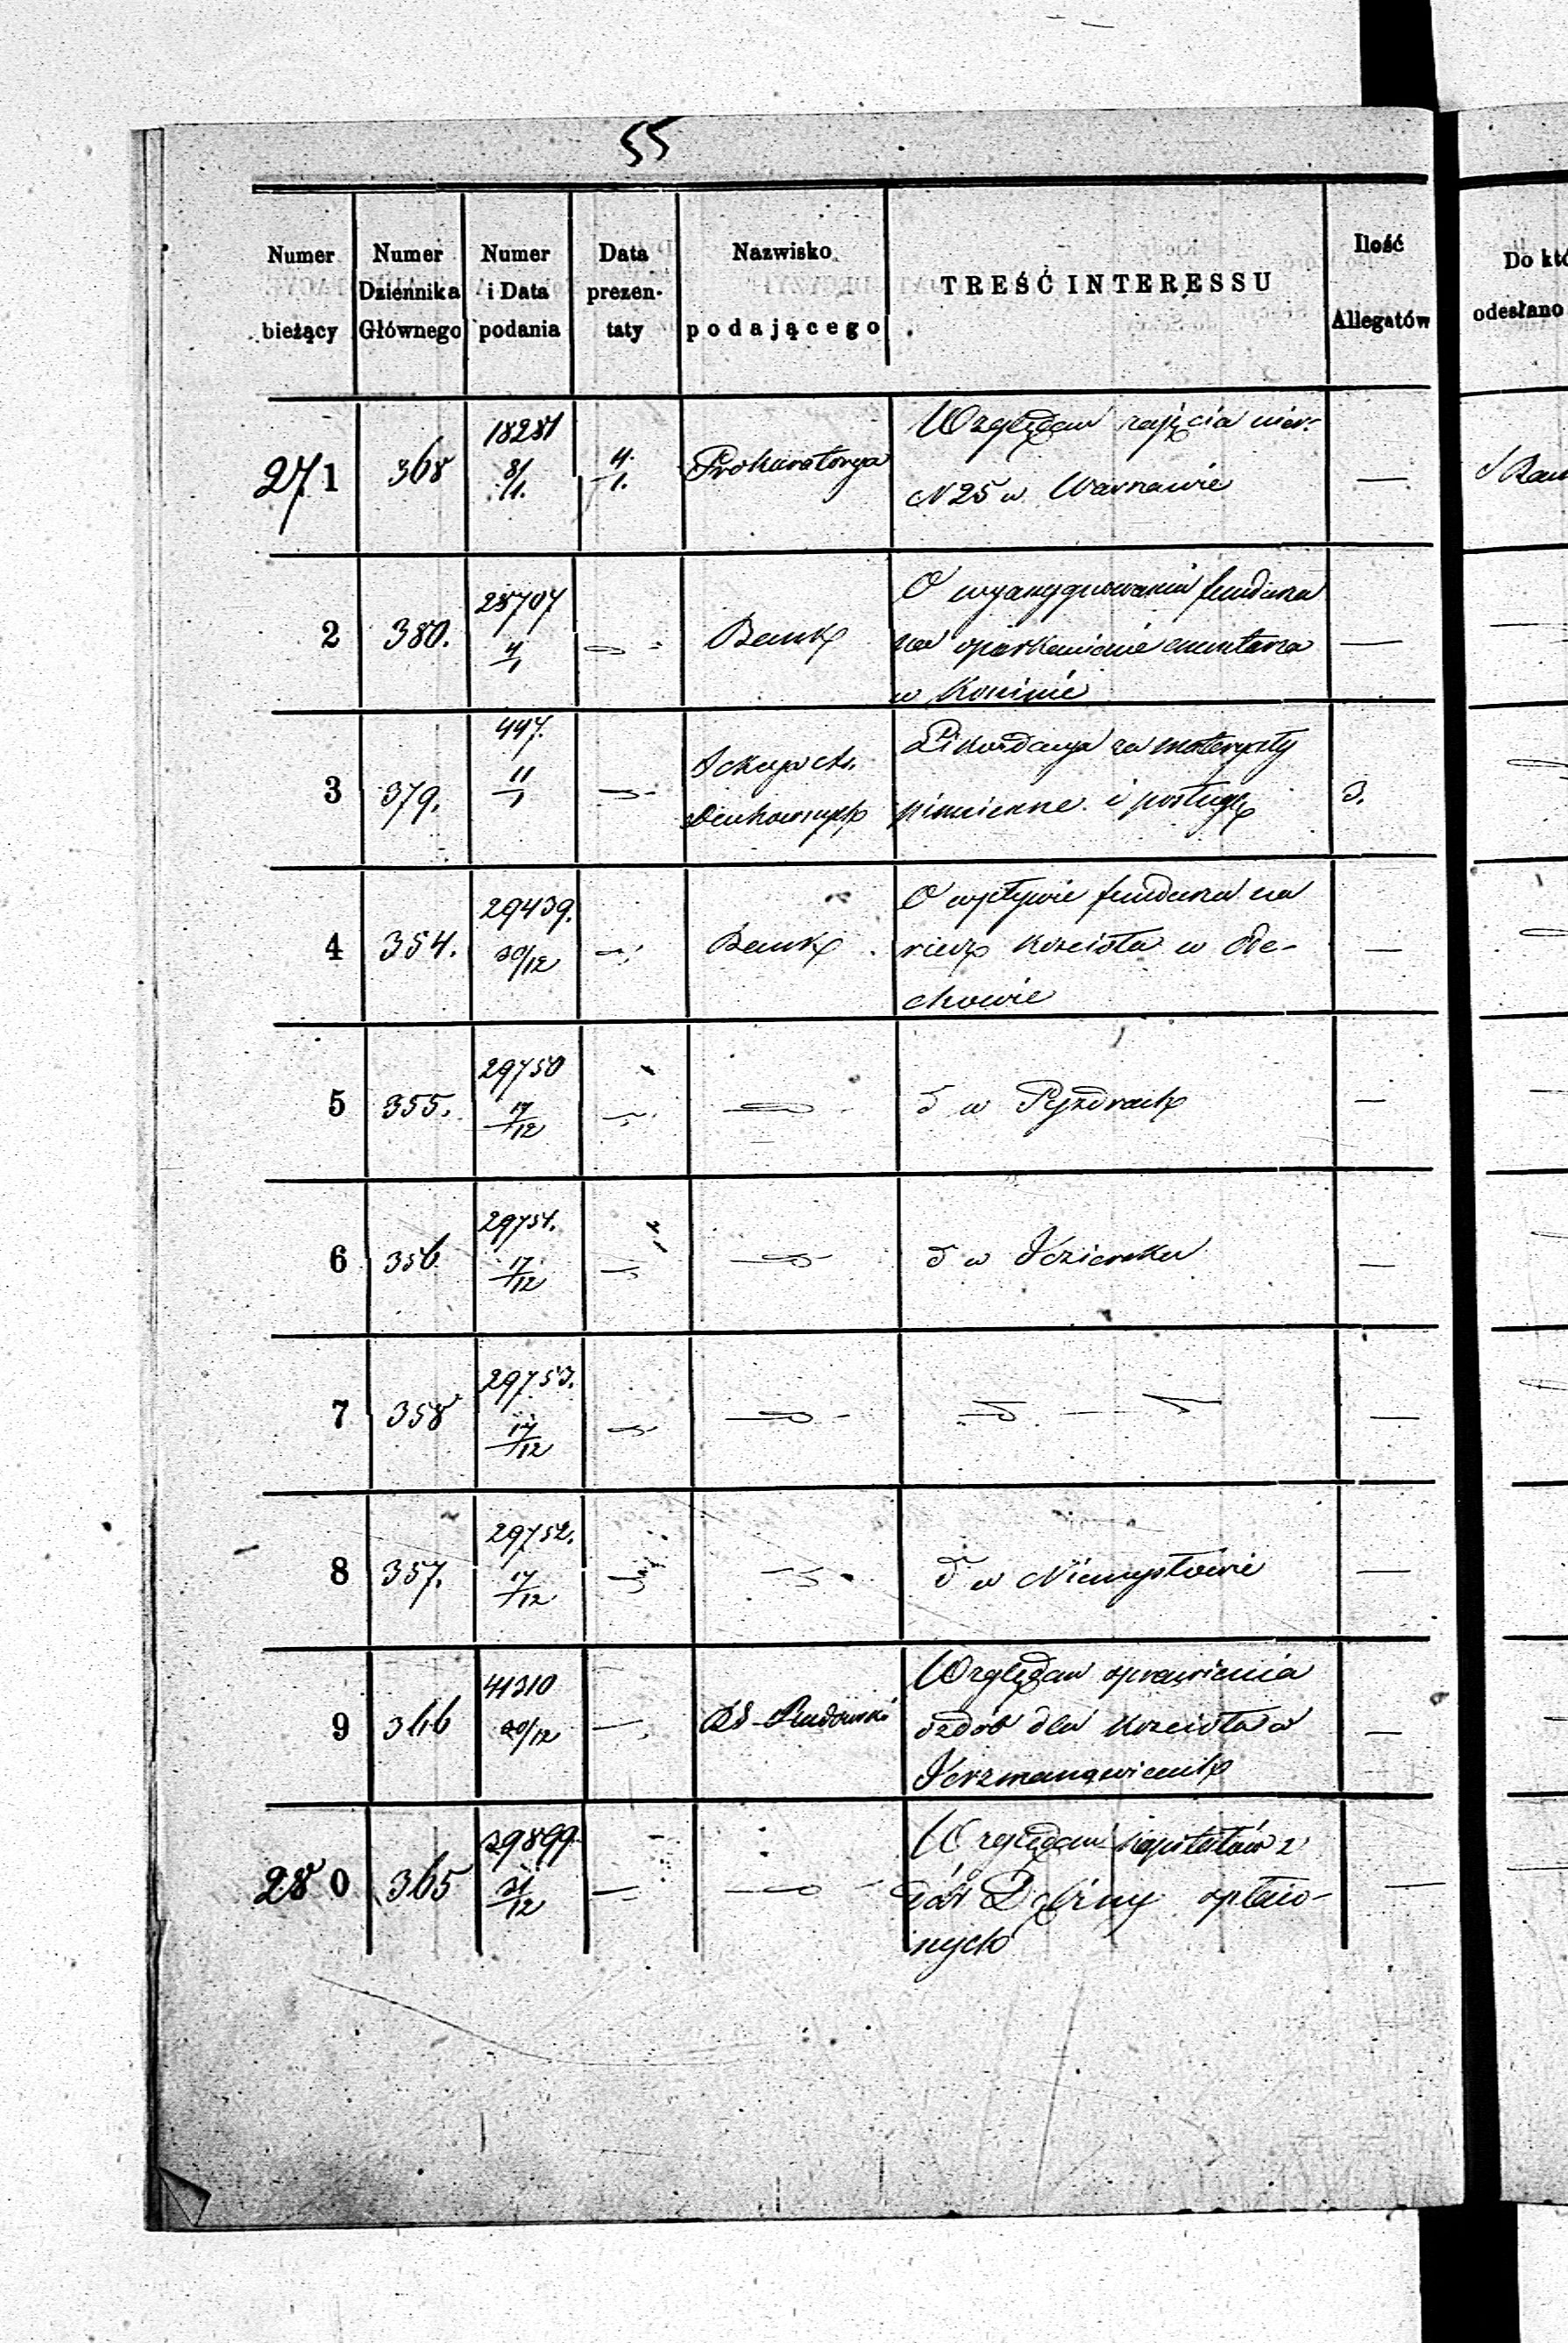 55
Numer bieżący
Numer Dziennika Głównego
Numer i Data podania
Data prezentaty
Nazwisko podającego
TREŚĆ INTERESSU
Ilość Allegatów
Do któ
odesłano
271 368 18281 8/1. 4/1. Prokuratorya
Względem zajęcia nier.
N 25 w Warszawie —
2 380. 4/1 Bank
O wyasygnowanie funduszu
na oparkanienie cmentarza
w Koninie —
3 379. 447. 11/1
Duchownych
Likwidacya za materyały
piśmienne i posługę 3.
4 354. 29439. 20/12 Bank
O wpływie funduszu na
rzecz kościoła w
chowie —
5 355. 29750 17/12
d w Pyzdrach —
6 356 29751. 17/12
d w —
7 358 29753. 17/12 —
8 357. 29752. 17/12
d w Niemysłowie —
9 366 41310 20/12 Rudowski
Względem sprawienia
ozdób dla kościoła w
Kerzmanowicach —
280 365 29899 31/12
Względem kapitałów z
dóbr Dębiny spłaco-
nych —